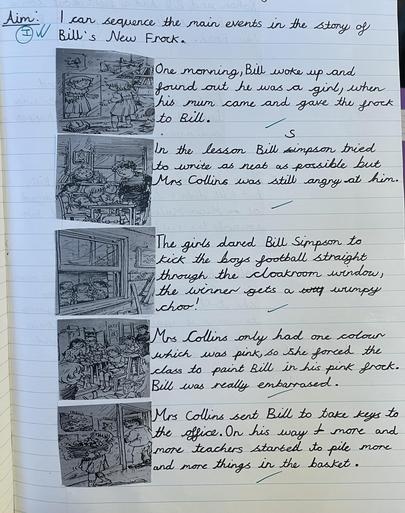 Aim: I can sequence the main events in the story of
Bill's New Frock.
One morning, Bill woke up and
found out he was a girl, when
his mum came and gave the frock
to Bill.
S
In the lesson Bill simpson tried
to write as neat as possible but
Mrs Collins was still angry at him.
The girls dared Bill Simpson to
kick the boys football straight
through the cloakroom window,
the winner gets a wumpy
choo!
Mrs Collins only had one colour
which was pink, so she forced the
class to paint Bill in his pink frock.
Bill was really embarrased.
Mrs Collins sent Bill to take keys to
the office. On his way + more and
more teachers started to pile more
and more things in the basket.